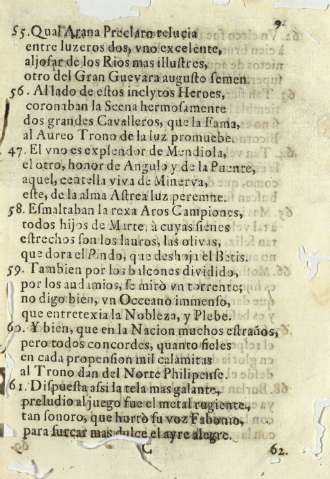 9.
55. Qual Arana Preclaro relucia
entre luzeros dos, vno excelente,
aljofar de los Rios mas illustres,
otro del Gran Guevara augusto semen.
56. Al lado de estos inclytos Heroes,
coronaban la Scena hermosamente
dos grandes Cavalleros, que la Fama,
al Aureo Trono de la luz promuebe.
47. El vno es explendor de Mendiola,
el otro, honor de Angulo y de la Puente,
aquel, centella viva de Minerva,
este, de la alma Astrea luz peremne.
58. Esmaltaban la rexa Aros Campiones,
todos hijos de Marte, à cuyas sienes
estrechos son los lauros, las olivas,
que dora el Pindo, que deshoja el Betis.
59. Tambien por los balcones dividido,
por los andamios, se mirò vn torrente;
no digo bien, vn Occeano immenso,
que entretexia la Nobleza, y Plebe.
60. Y bien, que en la Nacion muchos estraños,
pero todos concordes, quanto fieles
en cada propension mil calamitas
al Trono dan del Norte Philipense.
61. Dispuesta assi la tela mas galante,
preludio al juego fue el metal rugiente,
tan sonoro, que hurtò su voz Fabonio,
para surcar mas dulce el ayre alegre.
C 62.